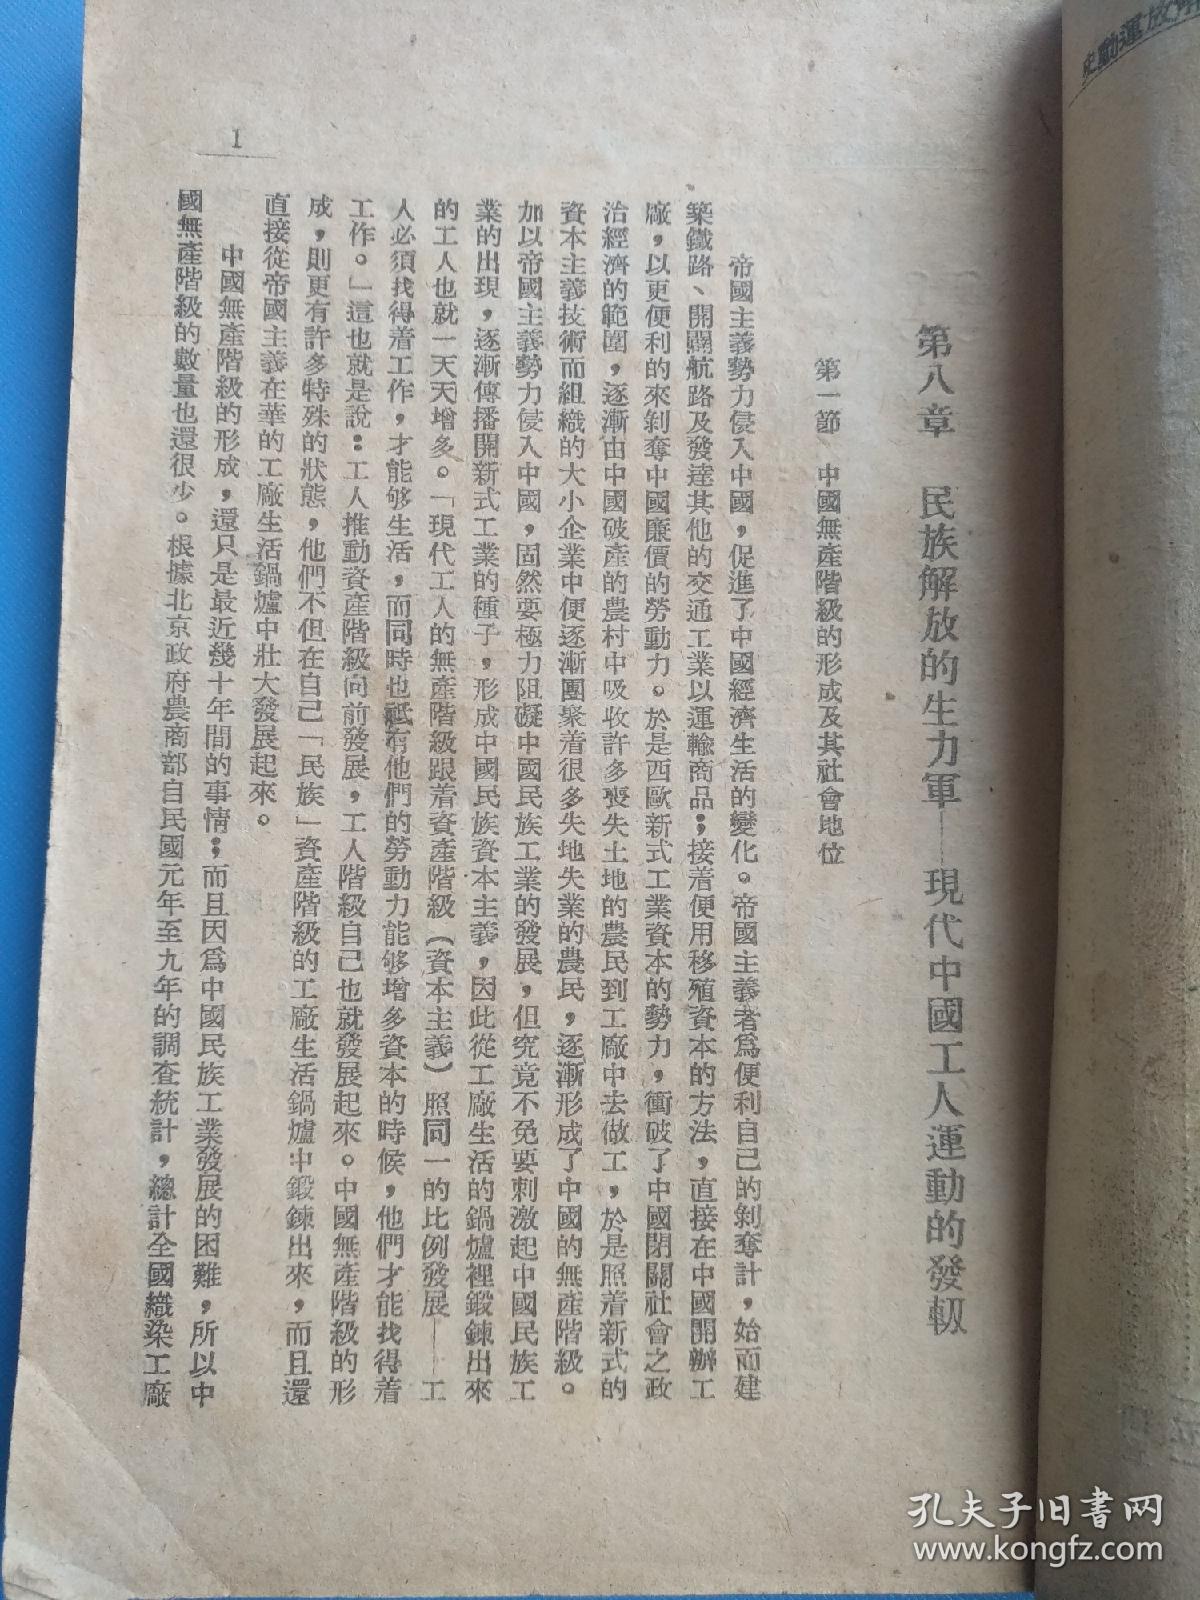 第八章　民族解放的生力軍——現代中國工人運動的發軔
第一節　中國無產階級的形成及其社會地位
帝國主義勢力侵入中國，促進了中國經濟生活的變化。帝國主義者爲便利自己的剝奪計，始而建
築鐵路、開闢航路及發達其他的交通工業以運輸商品；接着便用移殖資本的方法，直接在中國開辦工
廠，以更便利的來剝奪中國廉價的勞動力。於是西歐新式工業資本的勢力，衝破了中國閉關社會之政
治經濟的範圍，逐漸由中國破產的農村中吸收許多喪失土地的農民到工廠中去做工，於是照着新式的
資本主義技術而組織的大小企業中便逐漸團聚着很多失地失業的農民，逐漸形成了中國的無產階級。
加以帝國主義勢力侵入中國，固然要極力阻礙中國民族工業的發展，但究竟不免要刺激起中國民族工
業的出現，逐漸傳播開新式工業的種子，形成中國民族資本主義，因此從工廠生活的鍋爐裡鍛鍊出來
的工人也就一天天增多。「現代工人的無產階級跟着資產階級（資本主義）照同一的比例發展——工
人必須找得着工作，才能够生活，而同時也祗有他們的勞動力能够增多資本的時候，他們才能找得着
工作。」這也就是說：工人推動資產階級向前發展，工人階級自己也就發展起來。中國無產階級的形
成，則更有許多特殊的狀態，他們不但在自己「民族」資產階級的工廠生活鍋爐中鍛鍊出來，而且還
直接從帝國主義在華的工廠生活鍋爐中壯大發展起來。
中國無產階級的形成，還只是最近幾十年間的事情；而且因爲中國民族工業發展的困難，所以中
國無產階級的數量也還很少。根據北京政府農商部自民國元年至九年的調查統計，總計全國織染工廠
1
史動運放解
孔夫子旧书网
www.kongfz.com